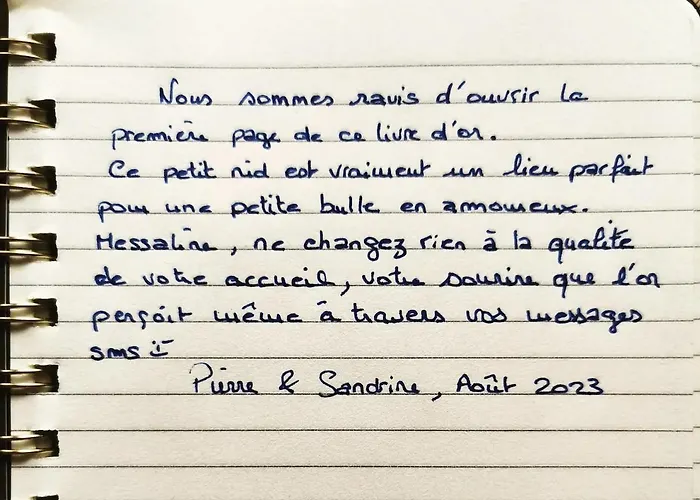 Nous sommes ravis d'ouvrir la
première page de ce livre d'or.
Ce petit nid est vraiment un lieu parfait
pour une petite bulle en amoureux.
Messaline, ne changez rien à la qualité
de votre accueil, votre sourire que l'on
perçoit même à travers vos messages
sms :-)
Pierre & Sandrine, Août 2023